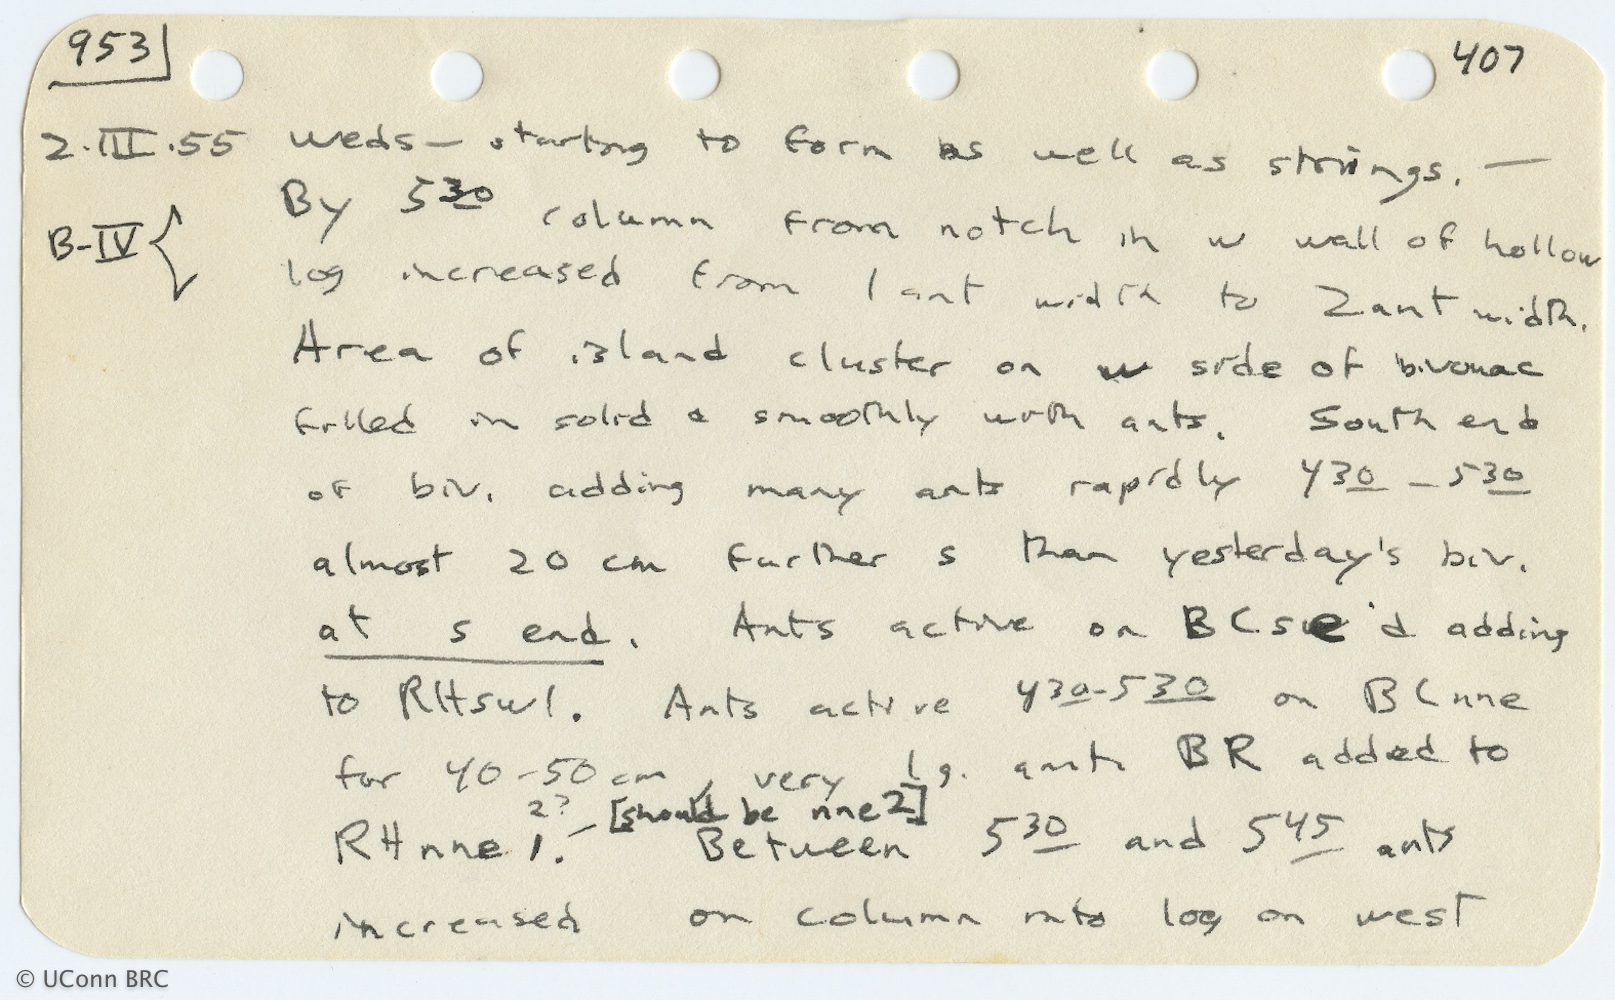 953 407
2.III.55 Weds — starting to form as well as strings. —
By 530 column from notch in w wall of hollow
B-IV { log increased from 1 ant width to 2 ant width.
Area of island cluster on w side of bivouac
filled in solid & smoothly with ants. South end
of biv. adding many ants rapidly 430 - 530
almost 20 cm further s than yesterday's biv.
at s end. Ants active on BCse'd adding
to RHsw1. Ants active 430-530 on BCnne
for 40-50 cm, very lg. amt. BR added to
2? - [should be nne2]
RHnne 1. Between 530 and 545 ants
increased on column into log on west
© UConn BRC